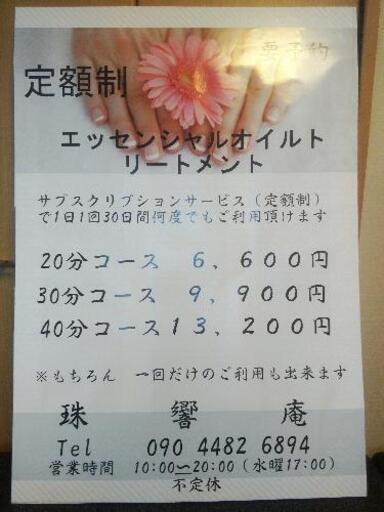 要予約
定額制
エッセンシャルオイルト
リートメント
サブスクリプションサービス（定額制）
で1日1回30日間何度でもご利用頂けます
20分コース 6、600円
30分コース 9、900円
40分コース13、200円
※もちろん 一回だけのご利用も出来ます
珠 響 庵
Tel 090 4482 6894
営業時間 10:00～20:00（水曜17:00）
不定休